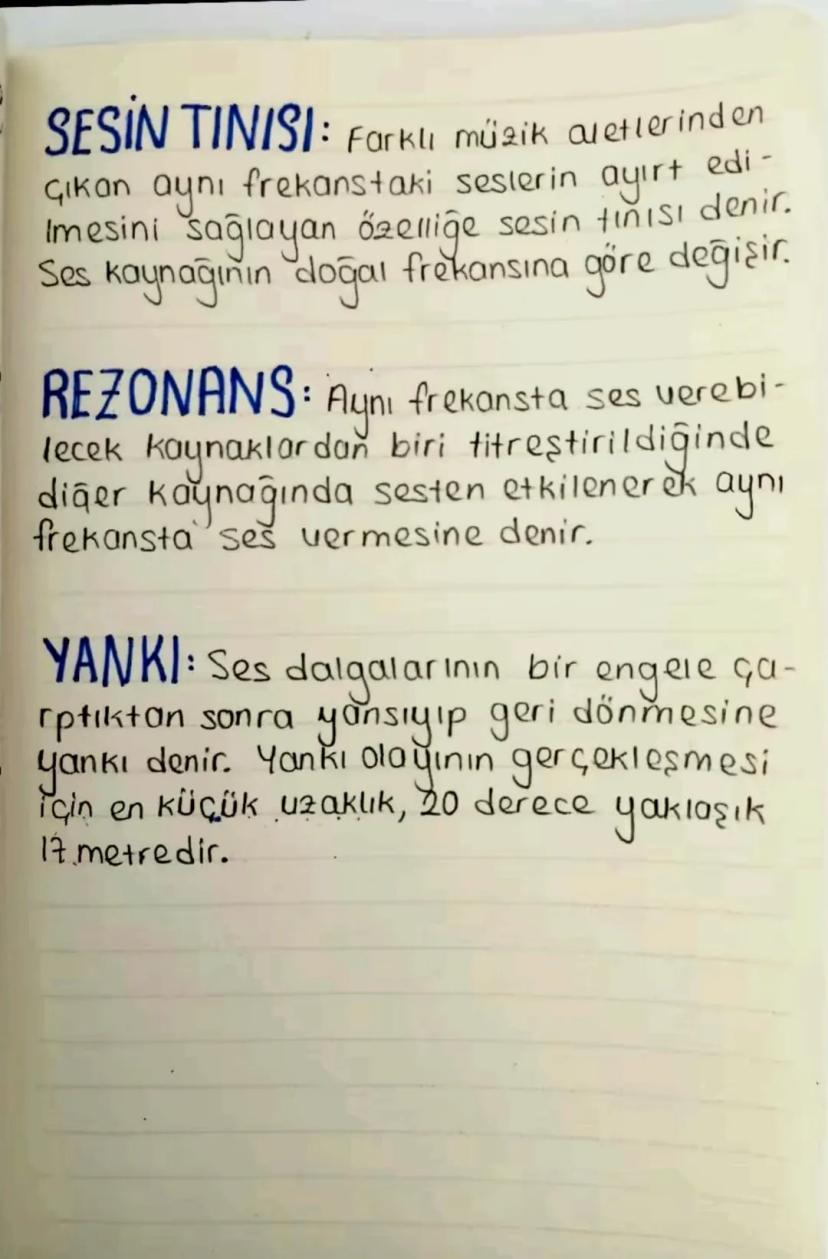 SESİN TINISI: Farklı müzik aletlerinden
çıkan aynı frekanstaki seslerin ayırt edi-
lmesini sağlayan özelliğe sesin tınısı denir.
Ses kaynağının doğal frekansına göre değişir.
REZONANS: Aynı frekansta ses verebi-
lecek kaynaklardan biri titreştirildiğinde
diğer kaynağında sesten etkilenerek aynı
frekansta ses vermesine denir.
YANKI: Ses dalgalarının bir engele ça-
rptıktan sonra yansıyıp geri dönmesine
yankı denir. Yankı olayının gerçekleşmesi
için en küçük uzaklık, 20 derece yaklaşık
17 metredir.